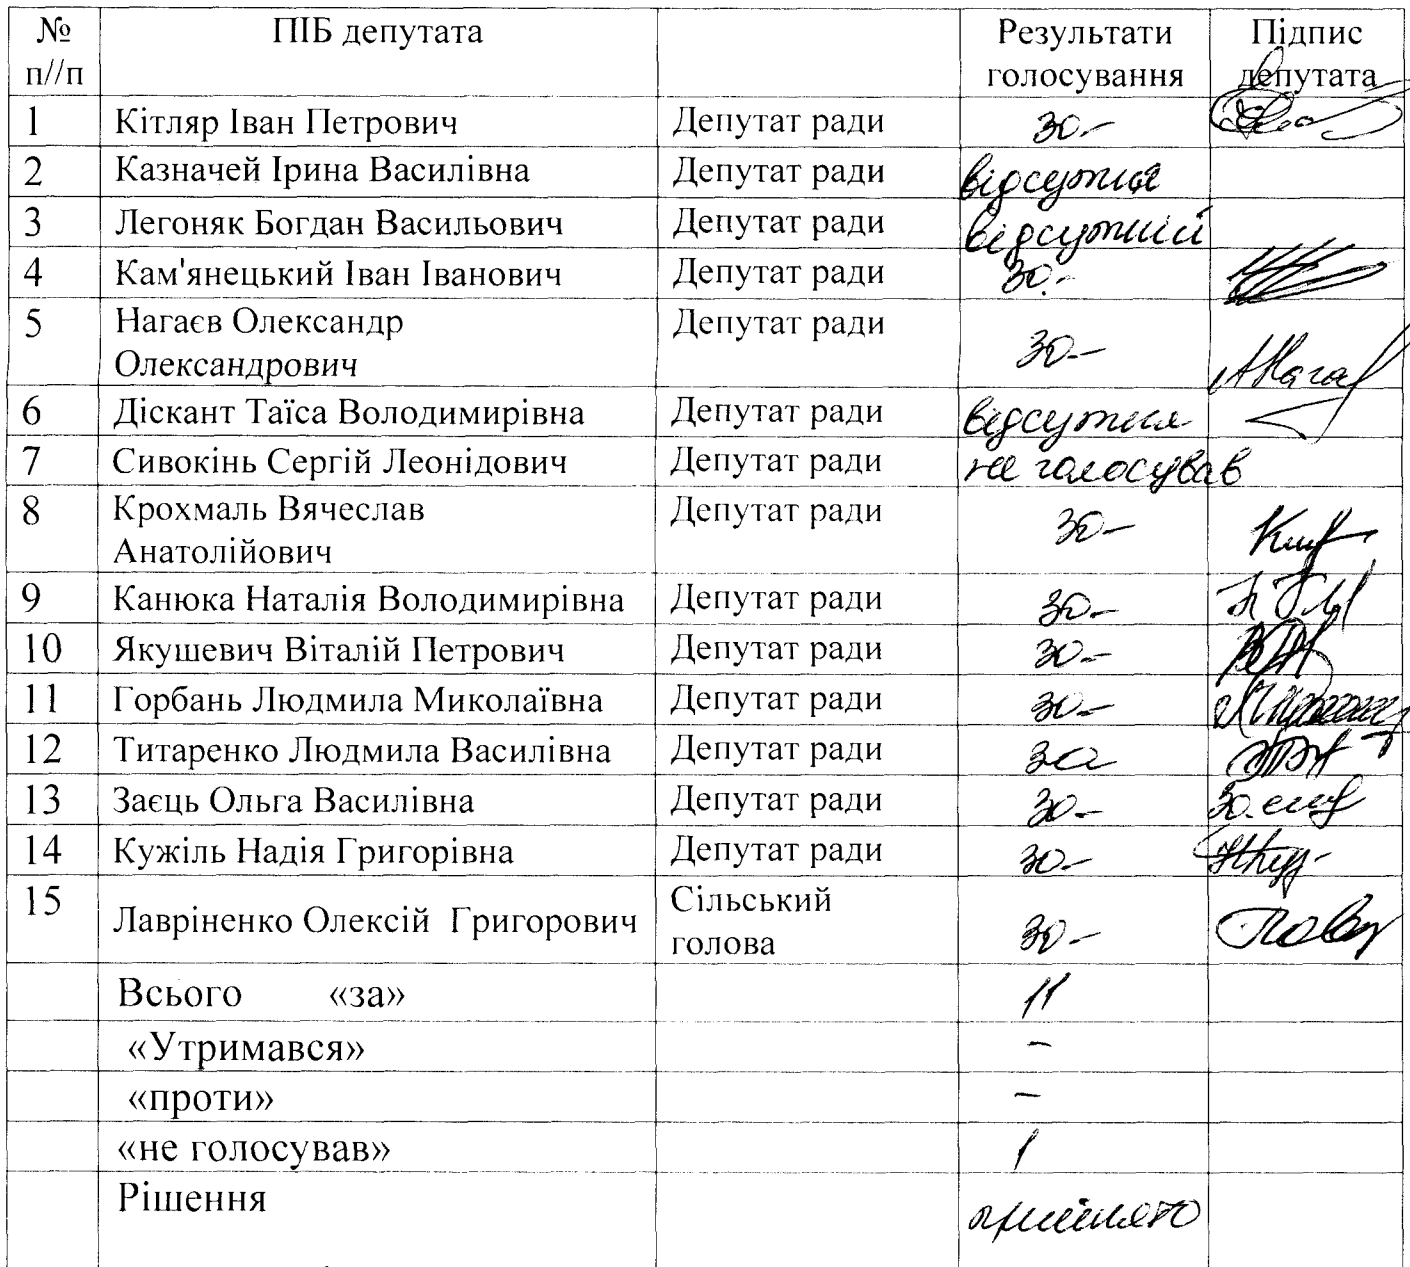 № ПІБ депутата Результати Підпис
п//п голосування депутата
1 Кітляр Іван Петрович Депутат ради за
2 Казначей Ірина Василівна Депутат ради відсутня
3 Легоняк Богдан Васильович Депутат ради відсутній
4 Кам'янецький Іван Іванович Депутат ради за
5 Нагаєв Олександр Депутат ради
Олександрович за
6 Діскант Таїса Володимирівна Депутат ради відсутня
7 Сивокінь Сергій Леонідович Депутат ради не голосував
8 Крохмаль Вячеслав Депутат ради за
Анатолійович
9 Канюка Наталія Володимирівна Депутат ради за
10 Якушевич Віталій Петрович Депутат ради за
11 Горбань Людмила Миколаївна Депутат ради за
12 Титаренко Людмила Василівна Депутат ради за
13 Заєць Ольга Василівна Депутат ради за
14 Кужіль Надія Григорівна Депутат ради за
15 Лавріненко Олексій Григорович Сільський за
голова
Всього «за» 11
«Утримався» –
«проти» –
«не голосував» 1
Рішення прийнято